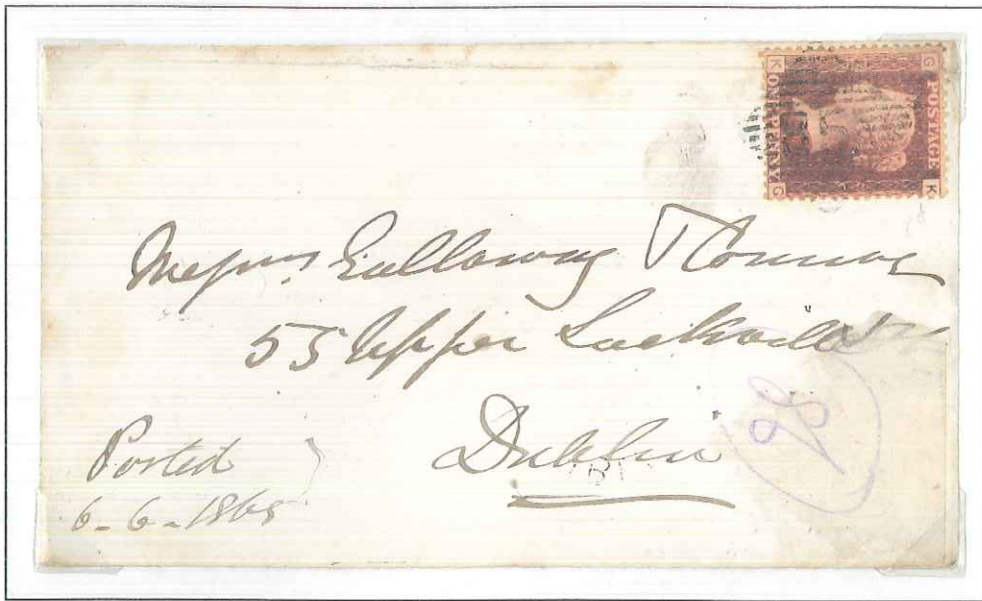 G POSTAGE K
K ONE PENNY G
Messrs. Galloway
55 Upper Sackville St
Dublin
Posted
6-6-1865